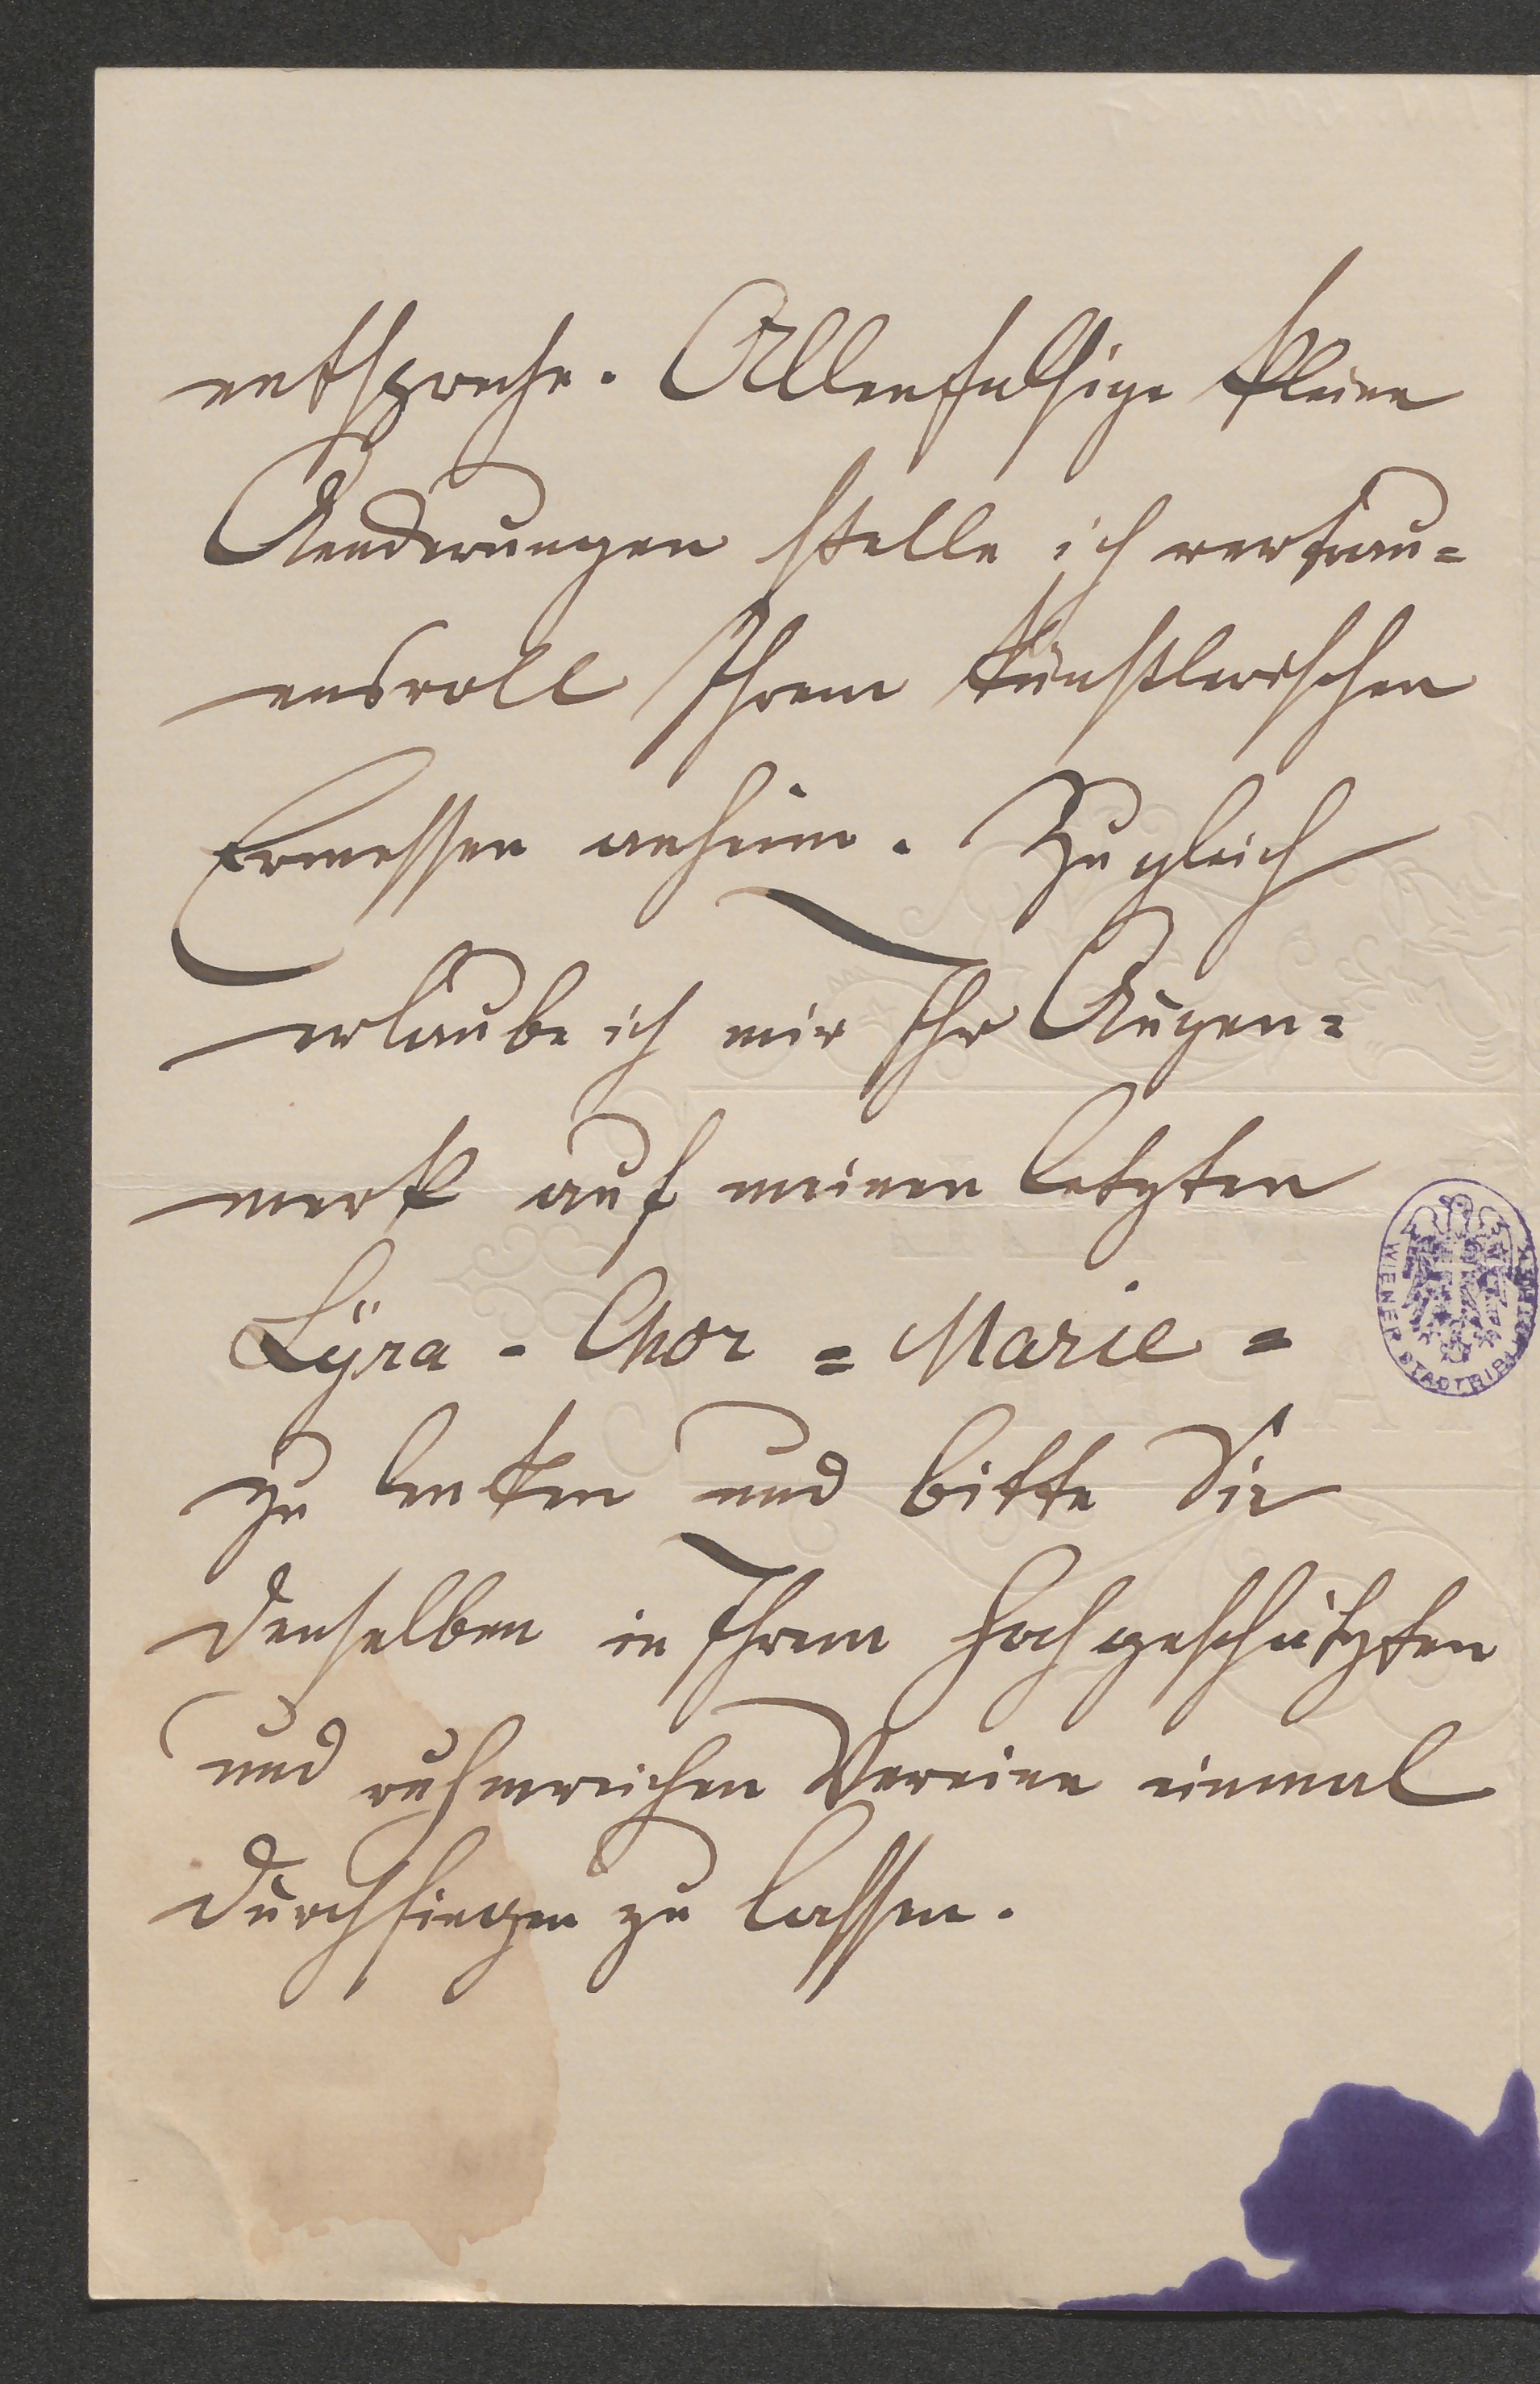 entspreche. Allenfalsige kleine
Aenderungen stelle ich vertrau=
ensvoll Ihrem künstlerischen
Ermessen anheim. Zugleich
erlaube ich mir Ihr Augen=
merk auf meinen letzten
Lÿra - Chor = Marie =
zu lenken und bitte Sie
denselben in Ihrem hochgeschätzten
und ruhmreichen Vereine einmal
durchsingen zu lassen.
WIENER STADTBIBLIOTHEK